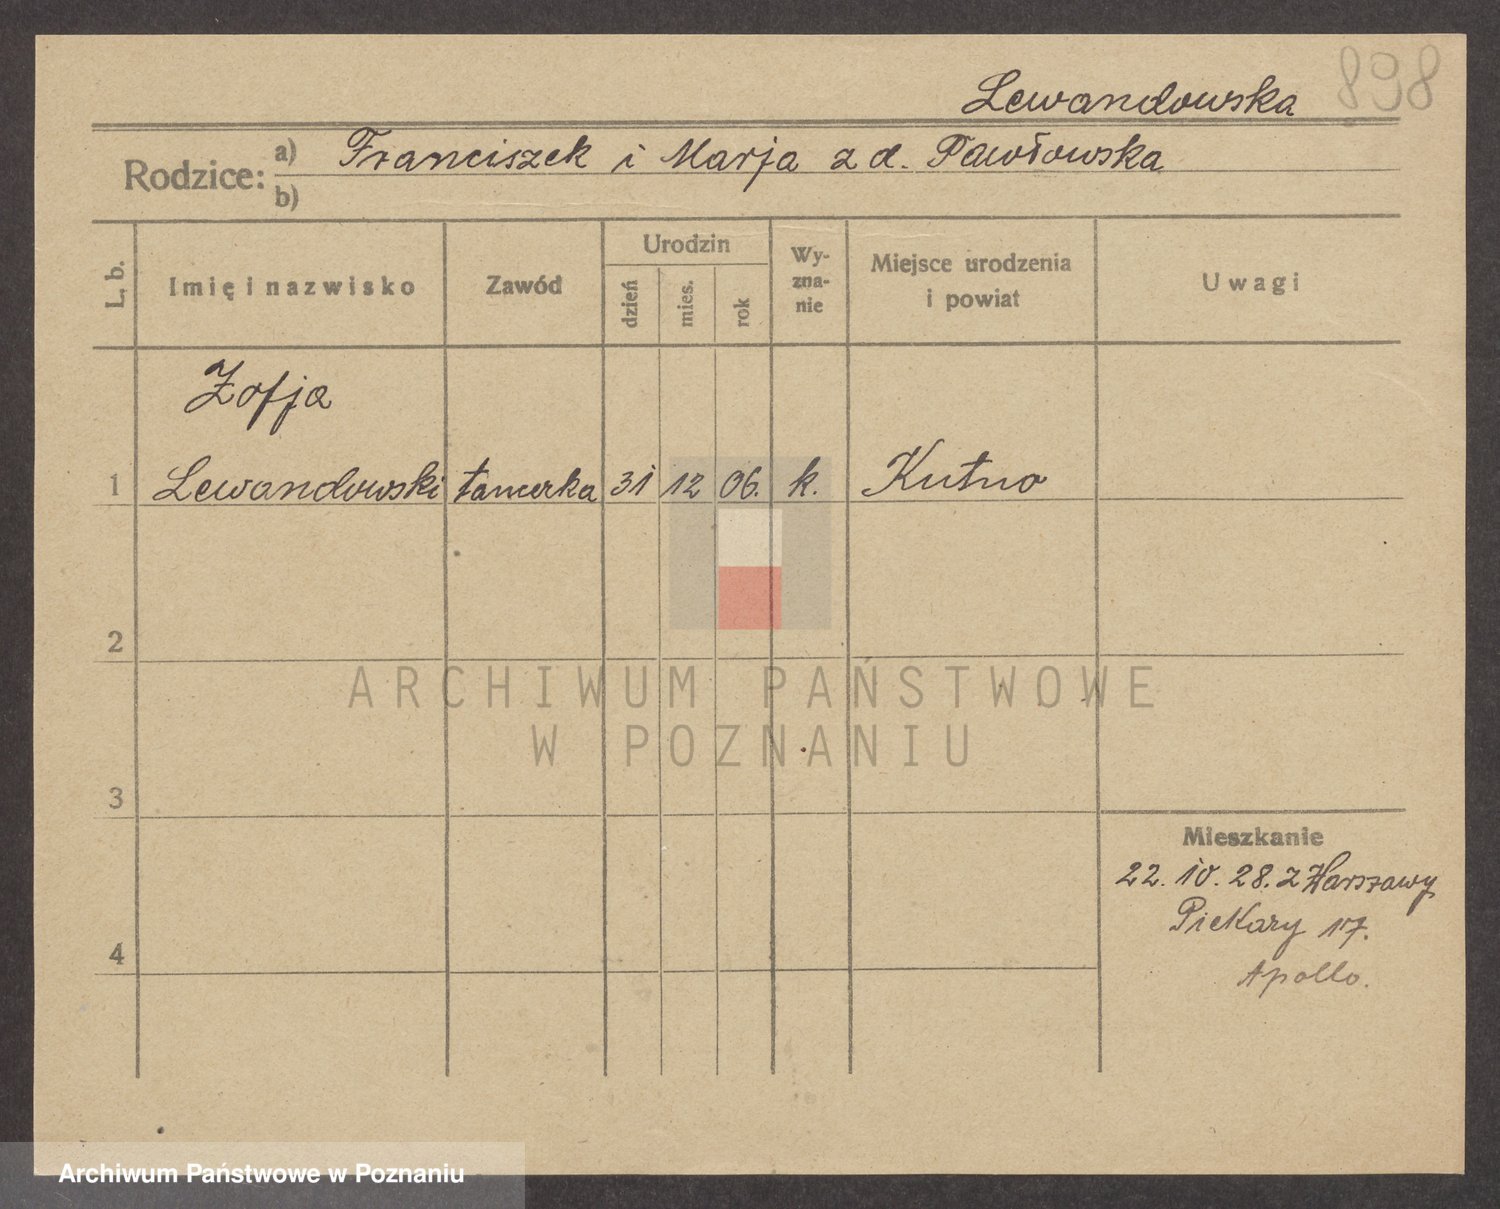 Lewandowska 898
Rodzice: a) Franciszek i Marja z d. Pawłowska
b)
L. b. Imię i nazwisko Zawód Urodzin dzień mies. rok Wyznanie Miejsce urodzenia i powiat Uwagi
Zofja
1 Lewandowski tancerka 31 12 06. k. Kutno
2
ARCHIWUM PAŃSTWOWE
W POZNANIU
3
Mieszkanie
22. 10. 28. z Warszawy
Piekary 17.
4
Apollo.
Archiwum Państwowe w Poznaniu